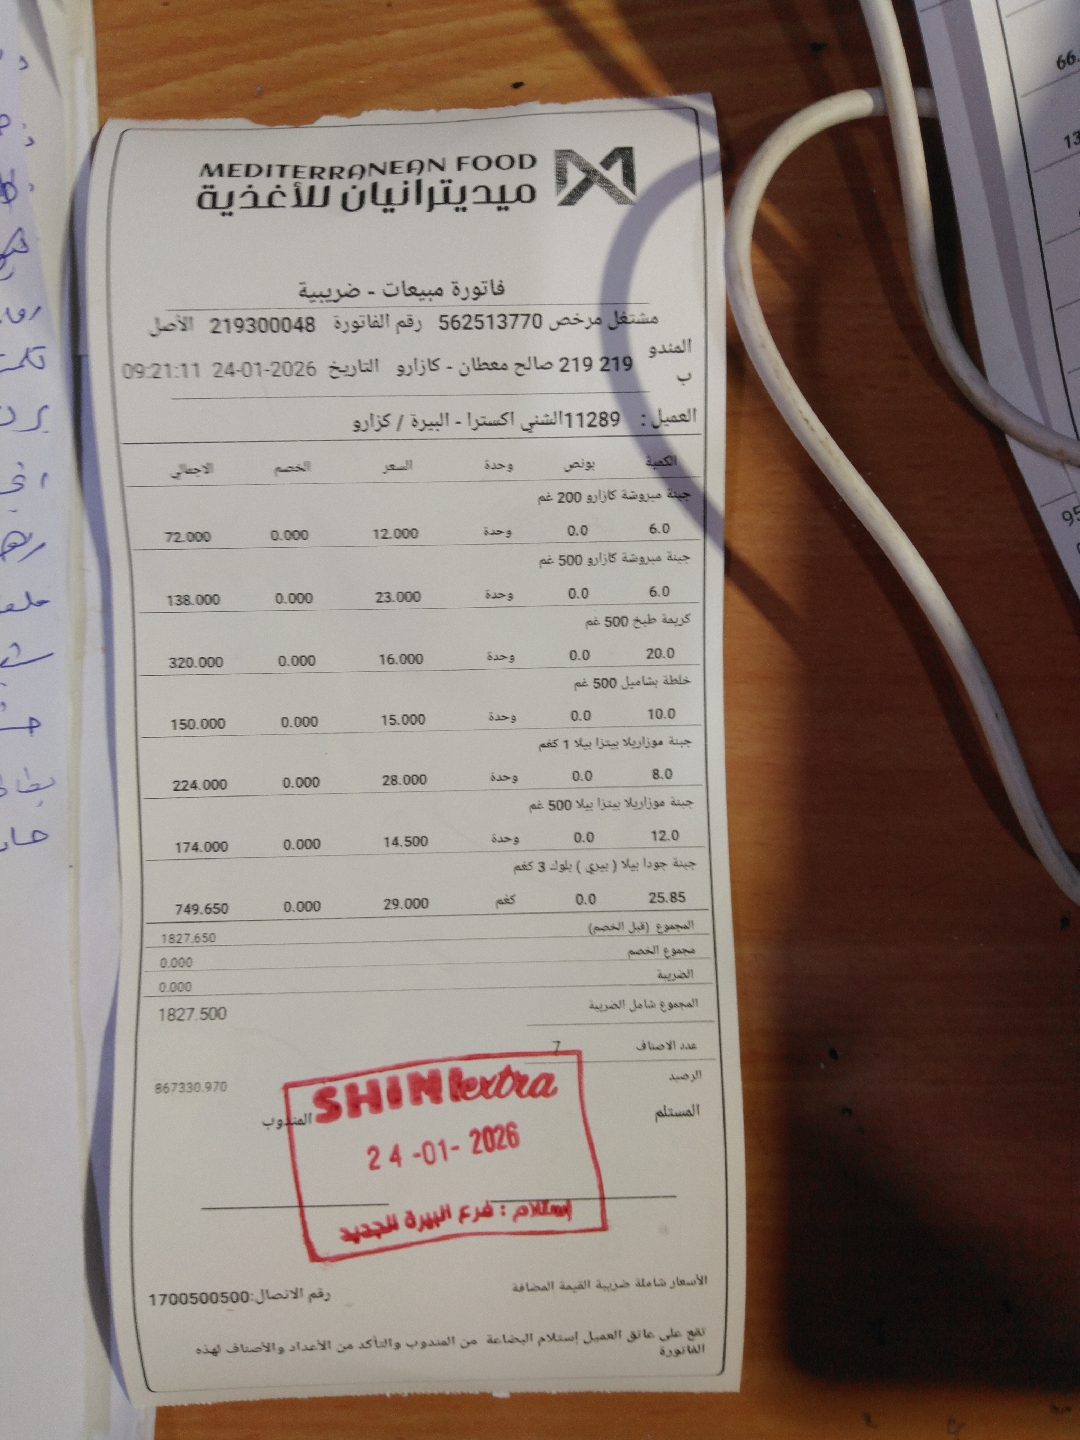 MEDITERRANEAN FOOD
ميديترانيان للأغذية
فاتورة مبيعات - ضريبية
مشتغل مرخص 562513770 رقم الفاتورة 219300048 الأصل
المندوب 219 219 صالح معطان - كازارو التاريخ 24-01-2026 09:21:11
العميل : 11289الشني اكسترا - البيرة / كزارو
الكمية بونص وحدة السعر الخصم الاجمالي
جبنة مبروشة كازارو 200 غم
6.0 0.0 وحدة 12.000 0.000 72.000
جبنة مبروشة كازارو 500 غم
6.0 0.0 وحدة 23.000 0.000 138.000
كريمة طبخ 500 غم
20.0 0.0 وحدة 16.000 0.000 320.000
خلطة بشاميل 500 غم
10.0 0.0 وحدة 15.000 0.000 150.000
جبنة موزاريلا بيتزا بيلا 1 كغم
8.0 0.0 وحدة 28.000 0.000 224.000
جبنة موزاريلا بيتزا بيلا 500 غم
12.0 0.0 وحدة 14.500 0.000 174.000
جبنة جودا بيلا ( بيري ) بلوك 3 كغم
25.85 0.0 كغم 29.000 0.000 749.650
المجموع (قبل الخصم) 1827.650
مجموع الخصم 0.000
الضريبة 0.000
المجموع شامل الضريبة 1827.500
عدد الاصناف 7
الرصيد 867330.970
المستلم المندوب
SHINI extra
24-01-2026
إستلام : فرع البيرة الجديد
الأسعار شاملة ضريبة القيمة المضافة رقم الاتصال:1700500500
تقع على عاتق العميل إستلام البضاعة من المندوب والتأكد من الأعداد والأصناف لهذه
الفاتورة
66.
13
95